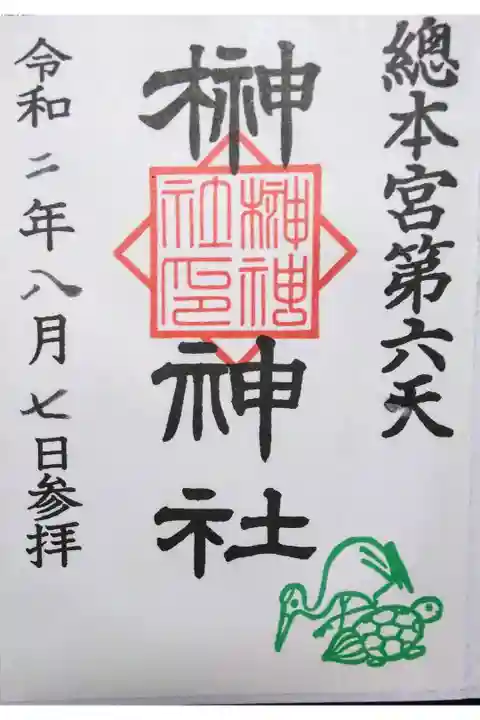 總本宮第六天
榊神社
榊神社印
令和二年八月七日参拝